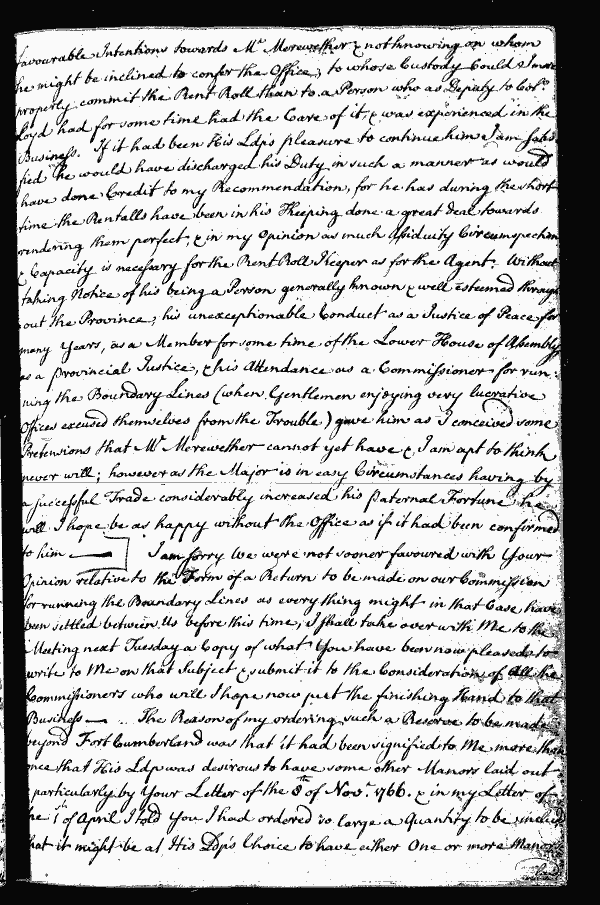 favourable Intentions towards Mr. Merewether & not knowing on whom
he might be inclined to confer the Office, to whose Custody Could I more
properly commit the Rent Roll than to a Person who as Deputy to Col.o
Loyd had for some time had the Care of it, & was experienced in the
Business. If it had been His Ldps pleasure to continue him I am Satis-
fied he would have discharged his Duty in such a manner as would
have done Credit to my Recommendation, for he has during the short
time the Rentalls have been in his Keeping done a great deal towards
rendring them perfect, & in my Opinion as much Assiduity Circumspection
& Capacity is necessary for the Rent Roll Keeper as for the Agent. Without
taking Notice of his being a Person generally known & well esteemed through
out the Province, his unexceptionable Conduct as a Justice of Peace for
many Years, as a Member for some time of the Lower House of Assembly
as a Provincial Justice, & his Attendance as a Commissioner for run-
ning the Boundary Lines (when Gentlemen enjoying very lucrative
Offices excused themselves from the Trouble) gave him as I conceived some
Pretensions that Mr. Merewether cannot yet have & I am apt to think
never will; however as the Major is in easy Circumstances having by
a successful Trade considerably increased his paternal Fortune he
will I hope be as happy without the Office as if it had been confirmed
to him — ] I am sorry We were not sooner favoured with Your
Opinion relative to the Form of a Return to be made on our Commission
for running the Boundary Lines as every thing might in that Case have
been settled between Us before this time, I shall take over with Me to the
Meeting next Tuesday a Copy of what You have been now pleased to
write to Me on that Subject & submit it to the Consideration of All the
Commissioners who will I hope now put the finishing Hand to that
Business — The Reason of my ordering such a Reserve to be made
beyond Fort Cumberland was that it had been signified to Me more than
once that His Ldp was desirous to have some other Manors laid out
particularly by Your Letter of the 8th of Novr. 1766. & in my Letter of
the 1st of April I told You I had ordered so large a Quantity to be
that it might be at His Ldp's Choice to have either One or more Manors